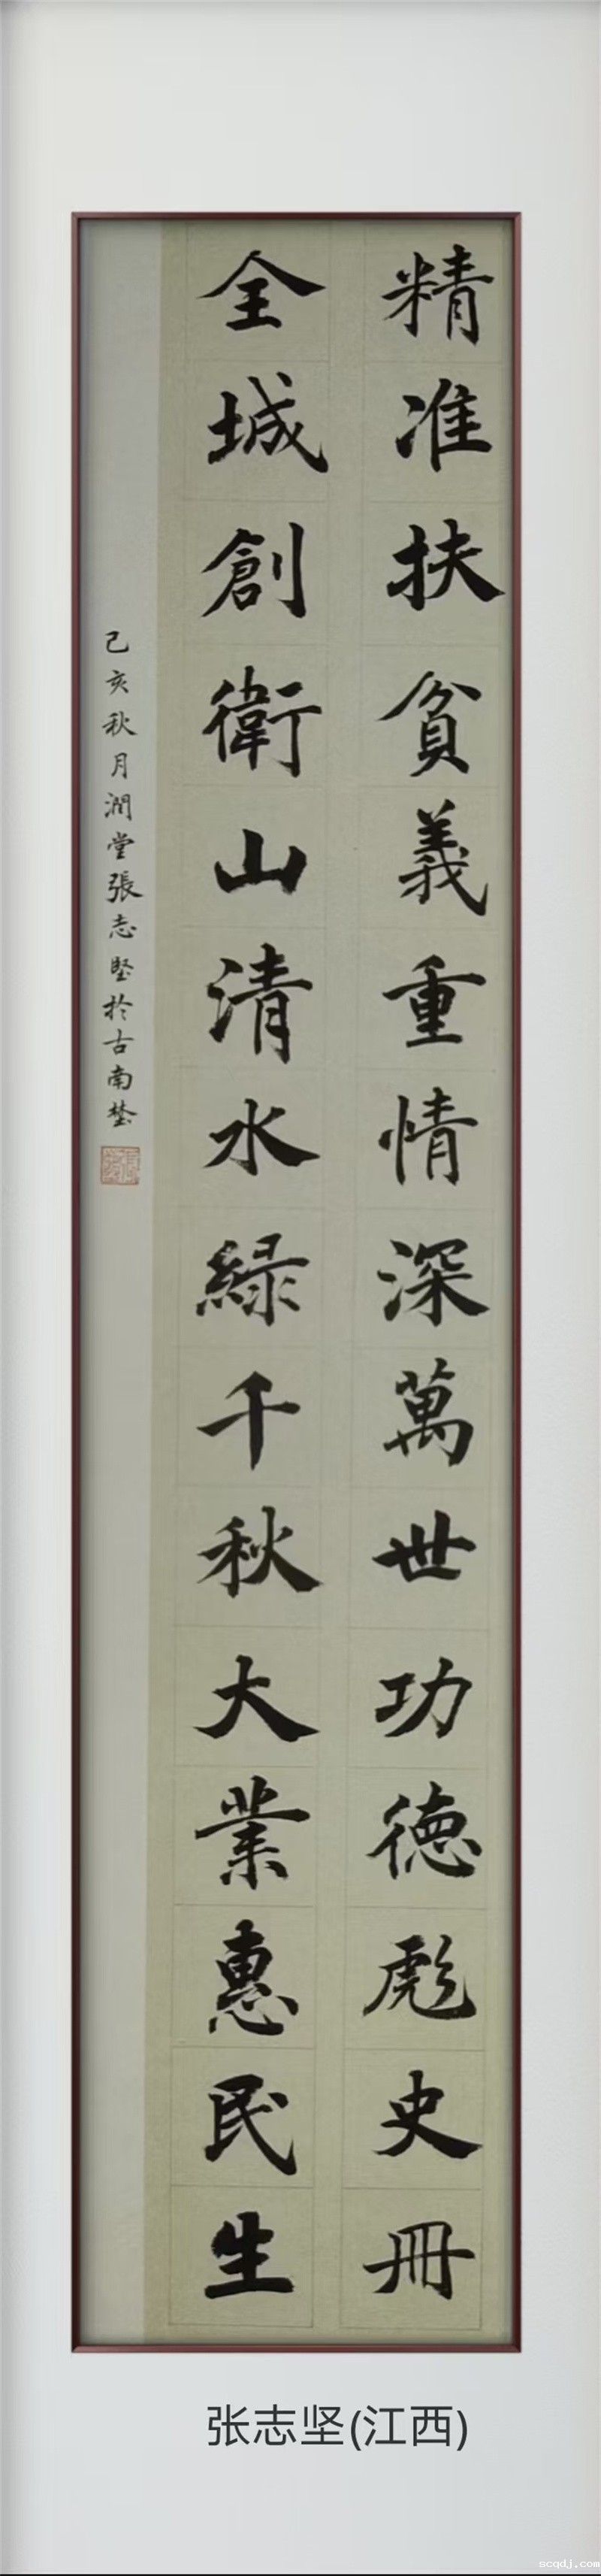 精准扶貧義重情深萬世功德彪史冊
全城創衛山清水緑千秋大業惠民生
己亥秋月潤堂張志堅於古南埜
张志坚(江西)
scqdj.com